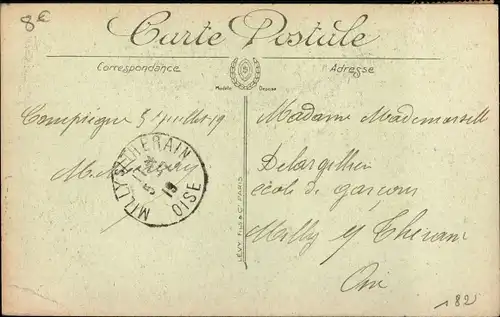 8€
Carte Postale
Correspondance
Adresse
Modèle Déposé
Compiègne 5 Juillet 19
Madame Mademoiselle
MILLY-S-THERAIN
19
OISE
école de garçons
Milly s/ Therain
Oise
LEVY FILS & Cie PARIS
182